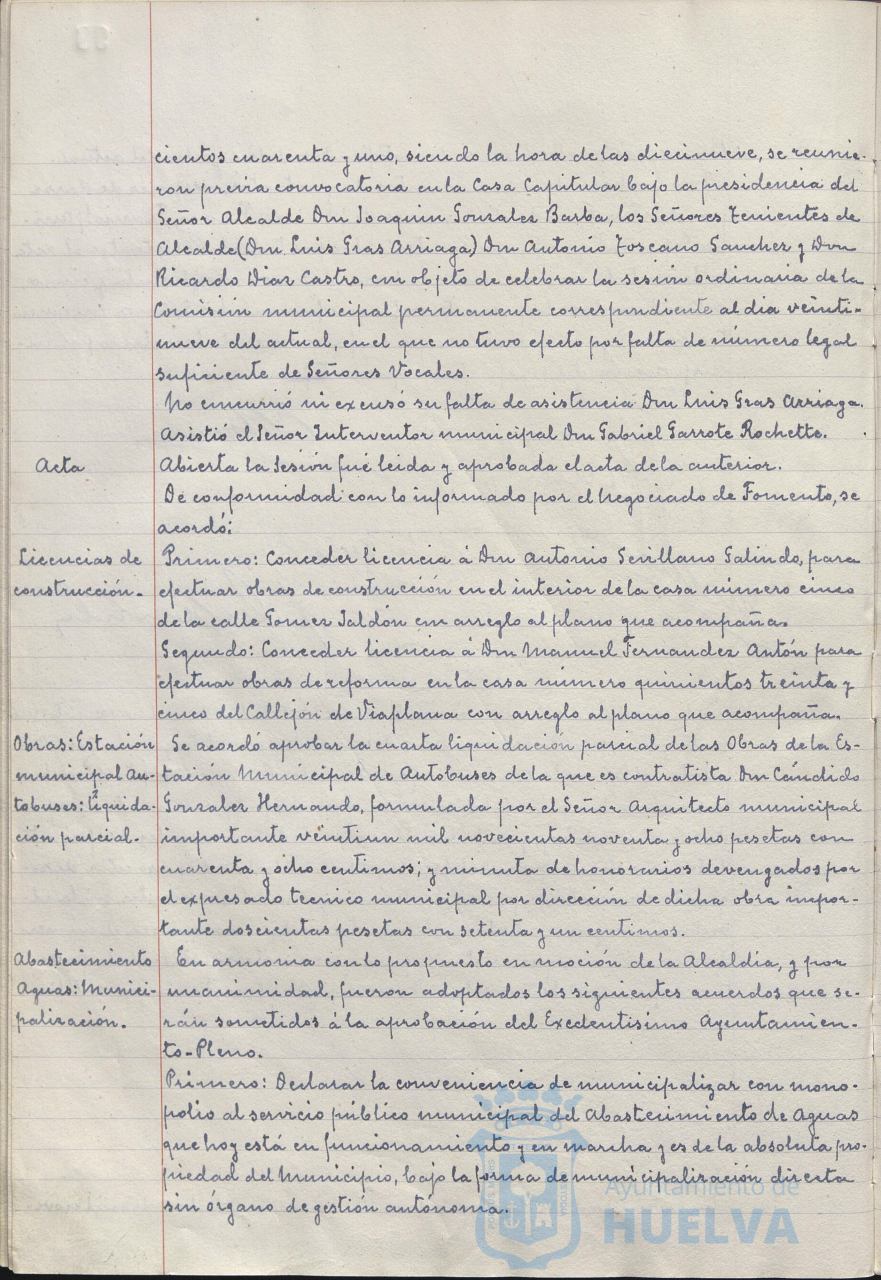 cientos cuarenta y uno, siendo la hora de las diecinueve, se reunie-
ron previa convocatoria en la Casa Capitular bajo la presidencia del
Señor Alcalde Don Joaquin Gonzalez Barba, los Señores Tenientes de
Alcalde (Don Luis Gras Arriaga) Don Antonio Toscano Sanchez y Don
Ricardo Diaz Castro, con objeto de celebrar la sesión ordinaria de la
Comisión municipal permanente correspondiente al dia veinti-
nueve del actual, en el que no tuvo efecto por falta de número legal
suficiente de Señores Vocales.
No concurrió ni excusó su falta de asistencia Don Luis Gras Arriaga.
Asistió el Señor Interventor municipal Don Gabriel Garrote Rochette.
Acta
Abierta la Sesión fué leida y aprobada el acta de la anterior.
De conformidad con lo informado por el Negociado de Fomento, se
acordó:
Licencias de
construcción.-
Primero: Conceder licencia á Don Antonio Sevillano Galindo, para
efectuar obras de construcción en el interior de la casa número cinco
de la calle Gomez Jaldón con arreglo al plano que acompaña.
Segundo: Conceder licencia á Don Manuel Fernandez Antón para
efectuar obras de reforma en la casa número quinientos treinta y
cinco del Callejón de Viaplana con arreglo al plano que acompaña.
Obras: Estación
municipal Au-
tobuses: liquida-
ción parcial.-
Se acordó aprobar la cuarta liquidación parcial de las Obras de la Es-
tación Municipal de Autobuses de la que es contratista Don Cándido
Gonzalez Hernando, formulada por el Señor Arquitecto municipal
importante veintiun mil novecientas noventa y ocho pesetas con
cuarenta y ocho centimos; y minuta de honorarios devengados por
el expresado tecnico municipal por dirección de dicha obra impor-
tante doscientas pesetas con setenta y un centimos.
Abastecimiento
Aguas: Munici-
palización.
En armonia con lo propuesto en moción de la Alcaldía, y por
unanimidad, fueron adoptados los siguientes acuerdos que se-
rán sometidos á la aprobación del Excdentisimo Ayuntamien-
to-Pleno.
Primero: Declarar la conveniencia de municipalizar con mono-
polio al servicio público municipal del Abastecimiento de Aguas
que hoy está en funcionamiento y en marcha y es de la absoluta pro-
piedad del Municipio, bajo la forma de municipalización directa
sin órgano de gestión autónoma.
Ayuntamiento de
HUELVA